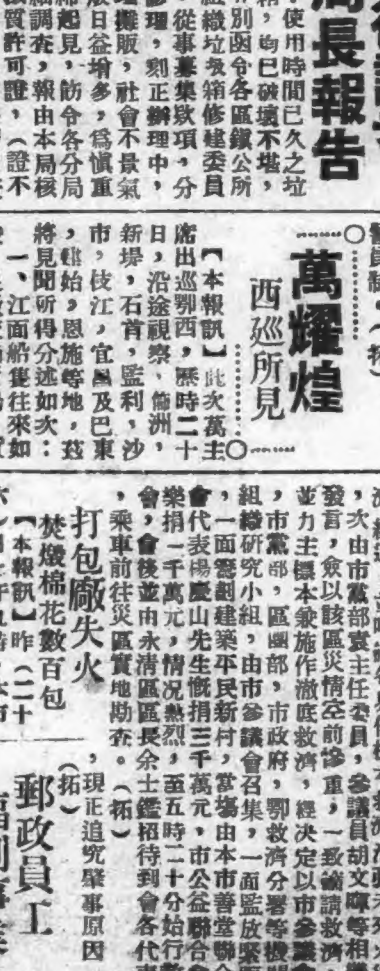 局長報告
使用時間已久之垃
均已破壞不堪，
別函令各區鎮公所
組織垃圾箱修建委員
從事募集欵項，分
修理，刻正辦理中，
攤販，社會不景氣
日益增多，爲愼重
起見，飭令各分局
調查，報由本局核
許可證，（證不
（拓）
萬耀煌
西巡所見
【本報訊】此次萬主
席出巡鄂西，歷時二十
日，沿途視察，
新堤，石首，監利，沙
市，枝江，宜昌及巴東
，建始，恩施等地，茲
將見聞所得分述如次：
一、江面船隻往來如
，次由市黨部袁主任委員，參議員胡文暉等相
發言，僉以該區災情空前慘重，一致籲請救濟
並力主標本兼施作澈底救濟，經決定以市參議
，市黨部，區團部，市政府，鄂救濟分署等機
組織研究小組，由市參議會召集，一面監放緊
，一面籌劃建築平民新村，當塲由本市善堂聯合
會代表楊慶山先生慨捐三千萬元，市公益聯合
樂捐一千萬元，情况熱烈，至五時二十分始行散
會，會後並由永清區區長余士鑑招待到會各代
，乘車前往災區實地勘查。（拓）
打包廠失火
焚燬棉花數百包
【本報訊】昨（二十
，現正追究肇事原因
（拓）
郵政員工